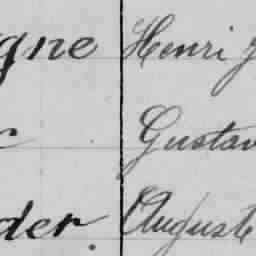 gne Henri J
c Gustav
der. Auguste